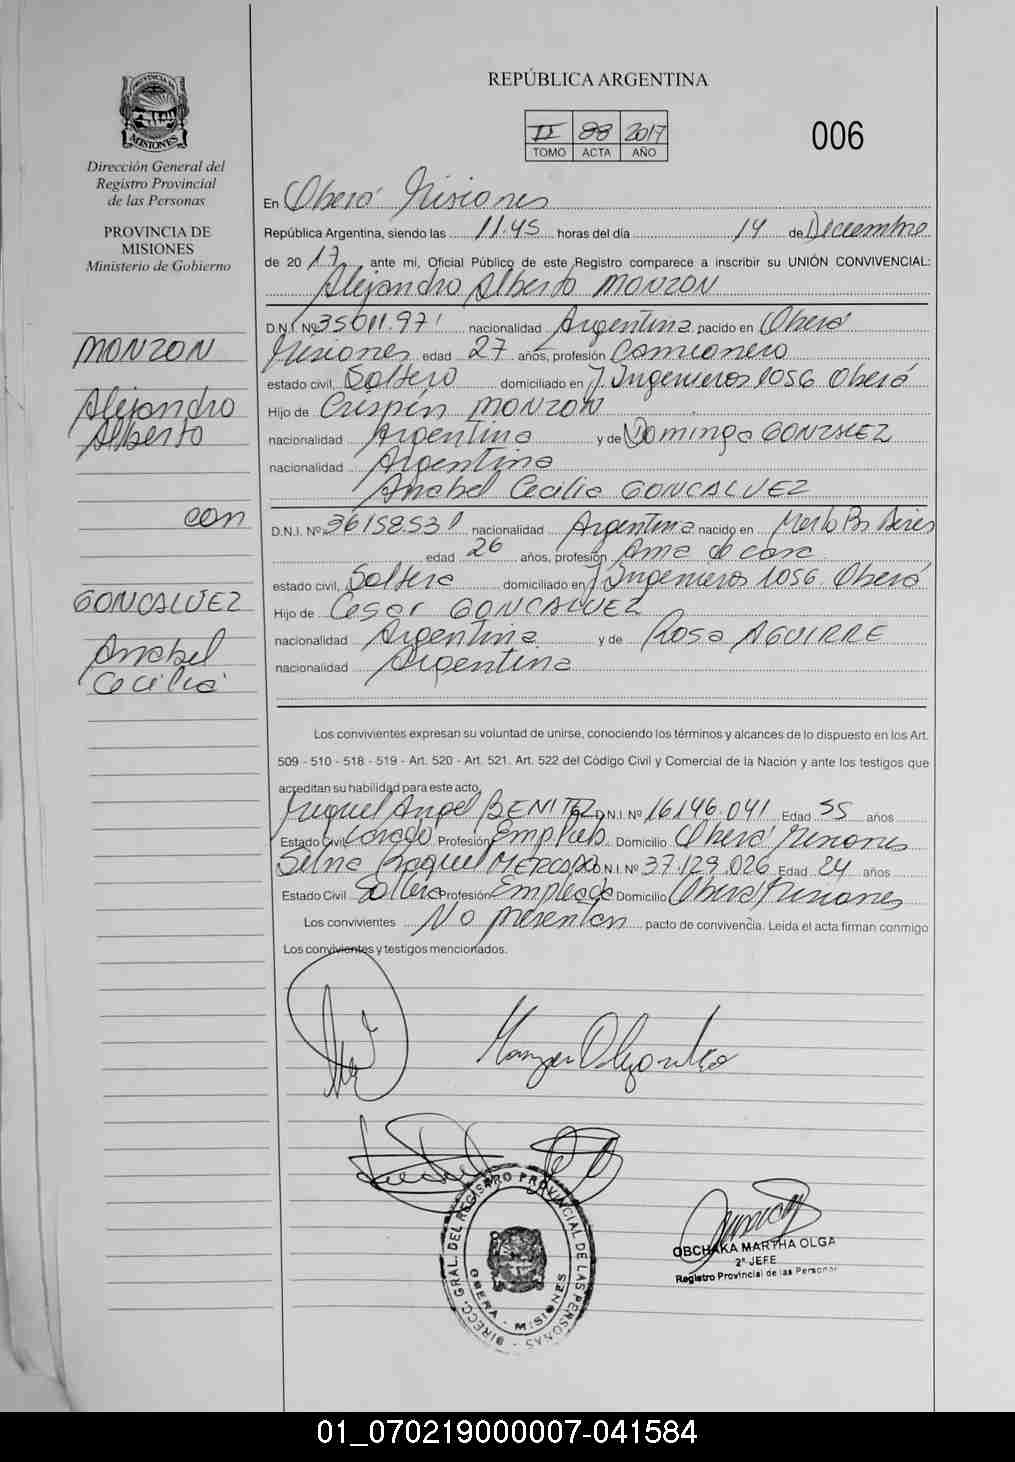 REPÚBLICA ARGENTINA
II 88 2017
TOMO ACTA AÑO
006
PROVINCIA DE
MISIONES
Dirección General del
Registro Provincial
de las Personas
PROVINCIA DE
MISIONES
Ministerio de Gobierno
MONZON
Alejandro
Alberto
con
GONCALVEZ
Anabel
Cecilia
En Oberá Misiones
República Argentina, siendo las 11.45 horas del día 14 de Diciembre
de 2017, ante mi, Oficial Público de este Registro comparece a inscribir su UNIÓN CONVIVENCIAL:
Alejandro Alberto MONZON
D.N.I. Nº 35.011.971 nacionalidad Argentina nacido en Oberá
Misiones edad 27 años, profesión Camionero
estado civil, Soltero domiciliado en J. Ingenieros 1056 Oberá
Hijo de Crispín MONZON
nacionalidad Argentina y de Dominga GONZALEZ
nacionalidad Argentina
Anabel Cecilia GONCALVEZ
D.N.I. Nº 36158.531 nacionalidad Argentina nacido en Merlo Bs Aires
edad 26 años, profesión Ama de casa
estado civil, Soltera domiciliado en J Ingenieros 1056 Oberá
Hijo de Cesar GONCALVEZ
nacionalidad Argentina y de Rosa AGUIRRE
nacionalidad Argentina
Los convivientes expresan su voluntad de unirse, conociendo los términos y alcances de lo dispuesto en los Art.
509 - 510 - 518 - 519 - Art. 520 - Art. 521. Art. 522 del Código Civil y Comercial de la Nación y ante los testigos que
acreditan su habilidad para este acto
Miguel Angel BENITEZ D.N.I. Nº 16.146.041 Edad 55 años
Estado Civil Casado Profesión Empleado Domicilio Oberá Misiones
Raquel MERCADO D.N.I. Nº 37.129.026 Edad 24 años
Estado Civil Soltera Profesión Empleada Domicilio Oberá Misiones
Los convivientes No presentan pacto de convivencia. Leída el acta firman conmigo
Los convivientes y testigos mencionados.
DIRECC. GRAL. DEL REGISTRO PROVINCIAL DE LAS PERSONAS
OBERA - MISIONES
OBCHAKA MARTHA OLGA
2ª JEFE
Registro Provincial de las Personas
01_070219000007-041584